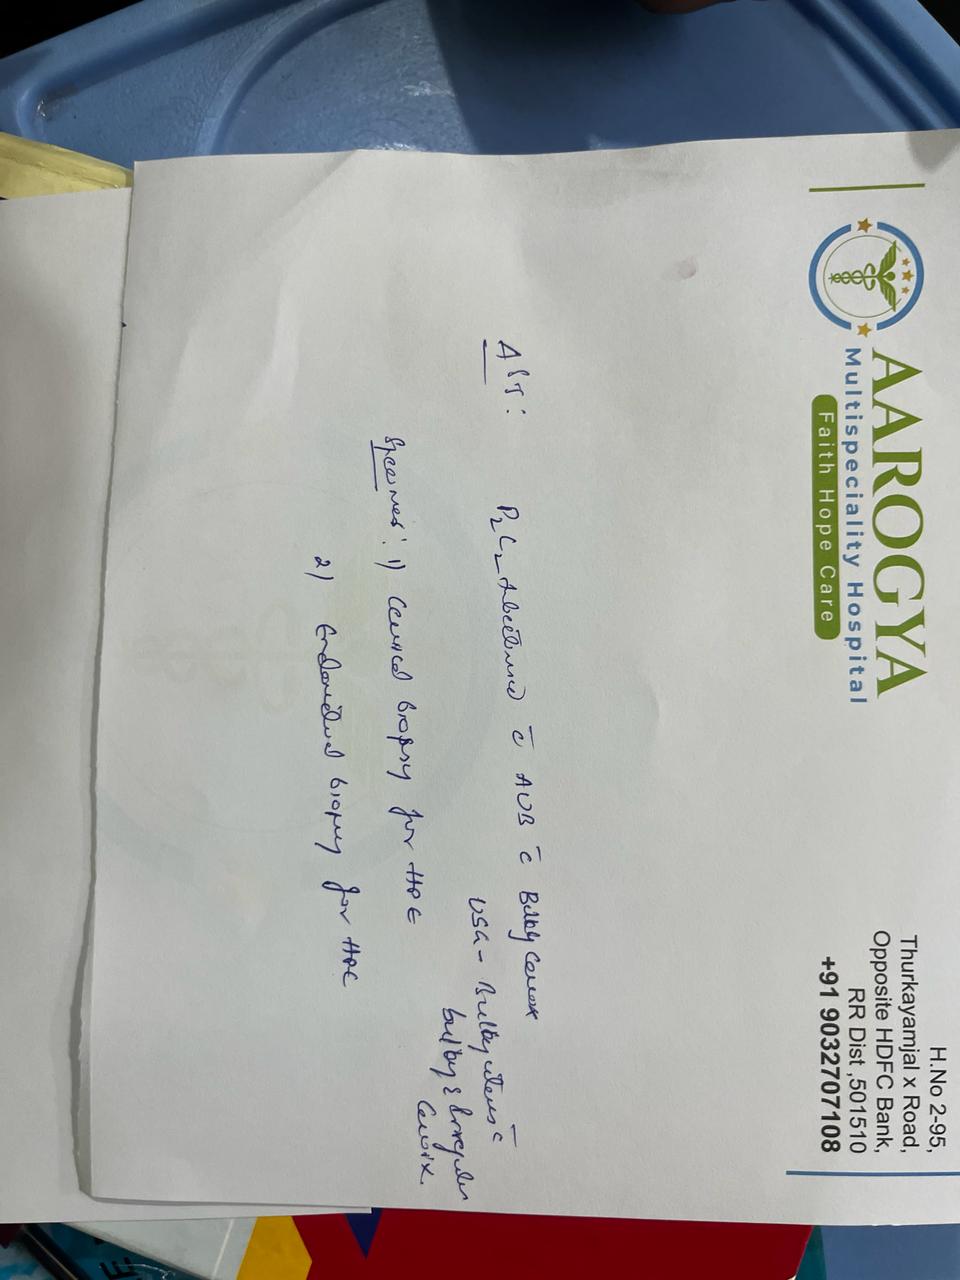 AAROGYA
Multispeciality Hospital
Faith Hope Care
H.No 2-95,
Thurkayamjal x Road,
Opposite HDFC Bank,
RR Dist ,501510
+91 9032707108
P2L2 c̄ AUB c̄ Bulky Cervix
USG - Bulky uterus c̄
bulky & Irregular
Cervix.
Specimen: 1) Cervical biopsy for HPE
2) Endometrial biopsy for HPE